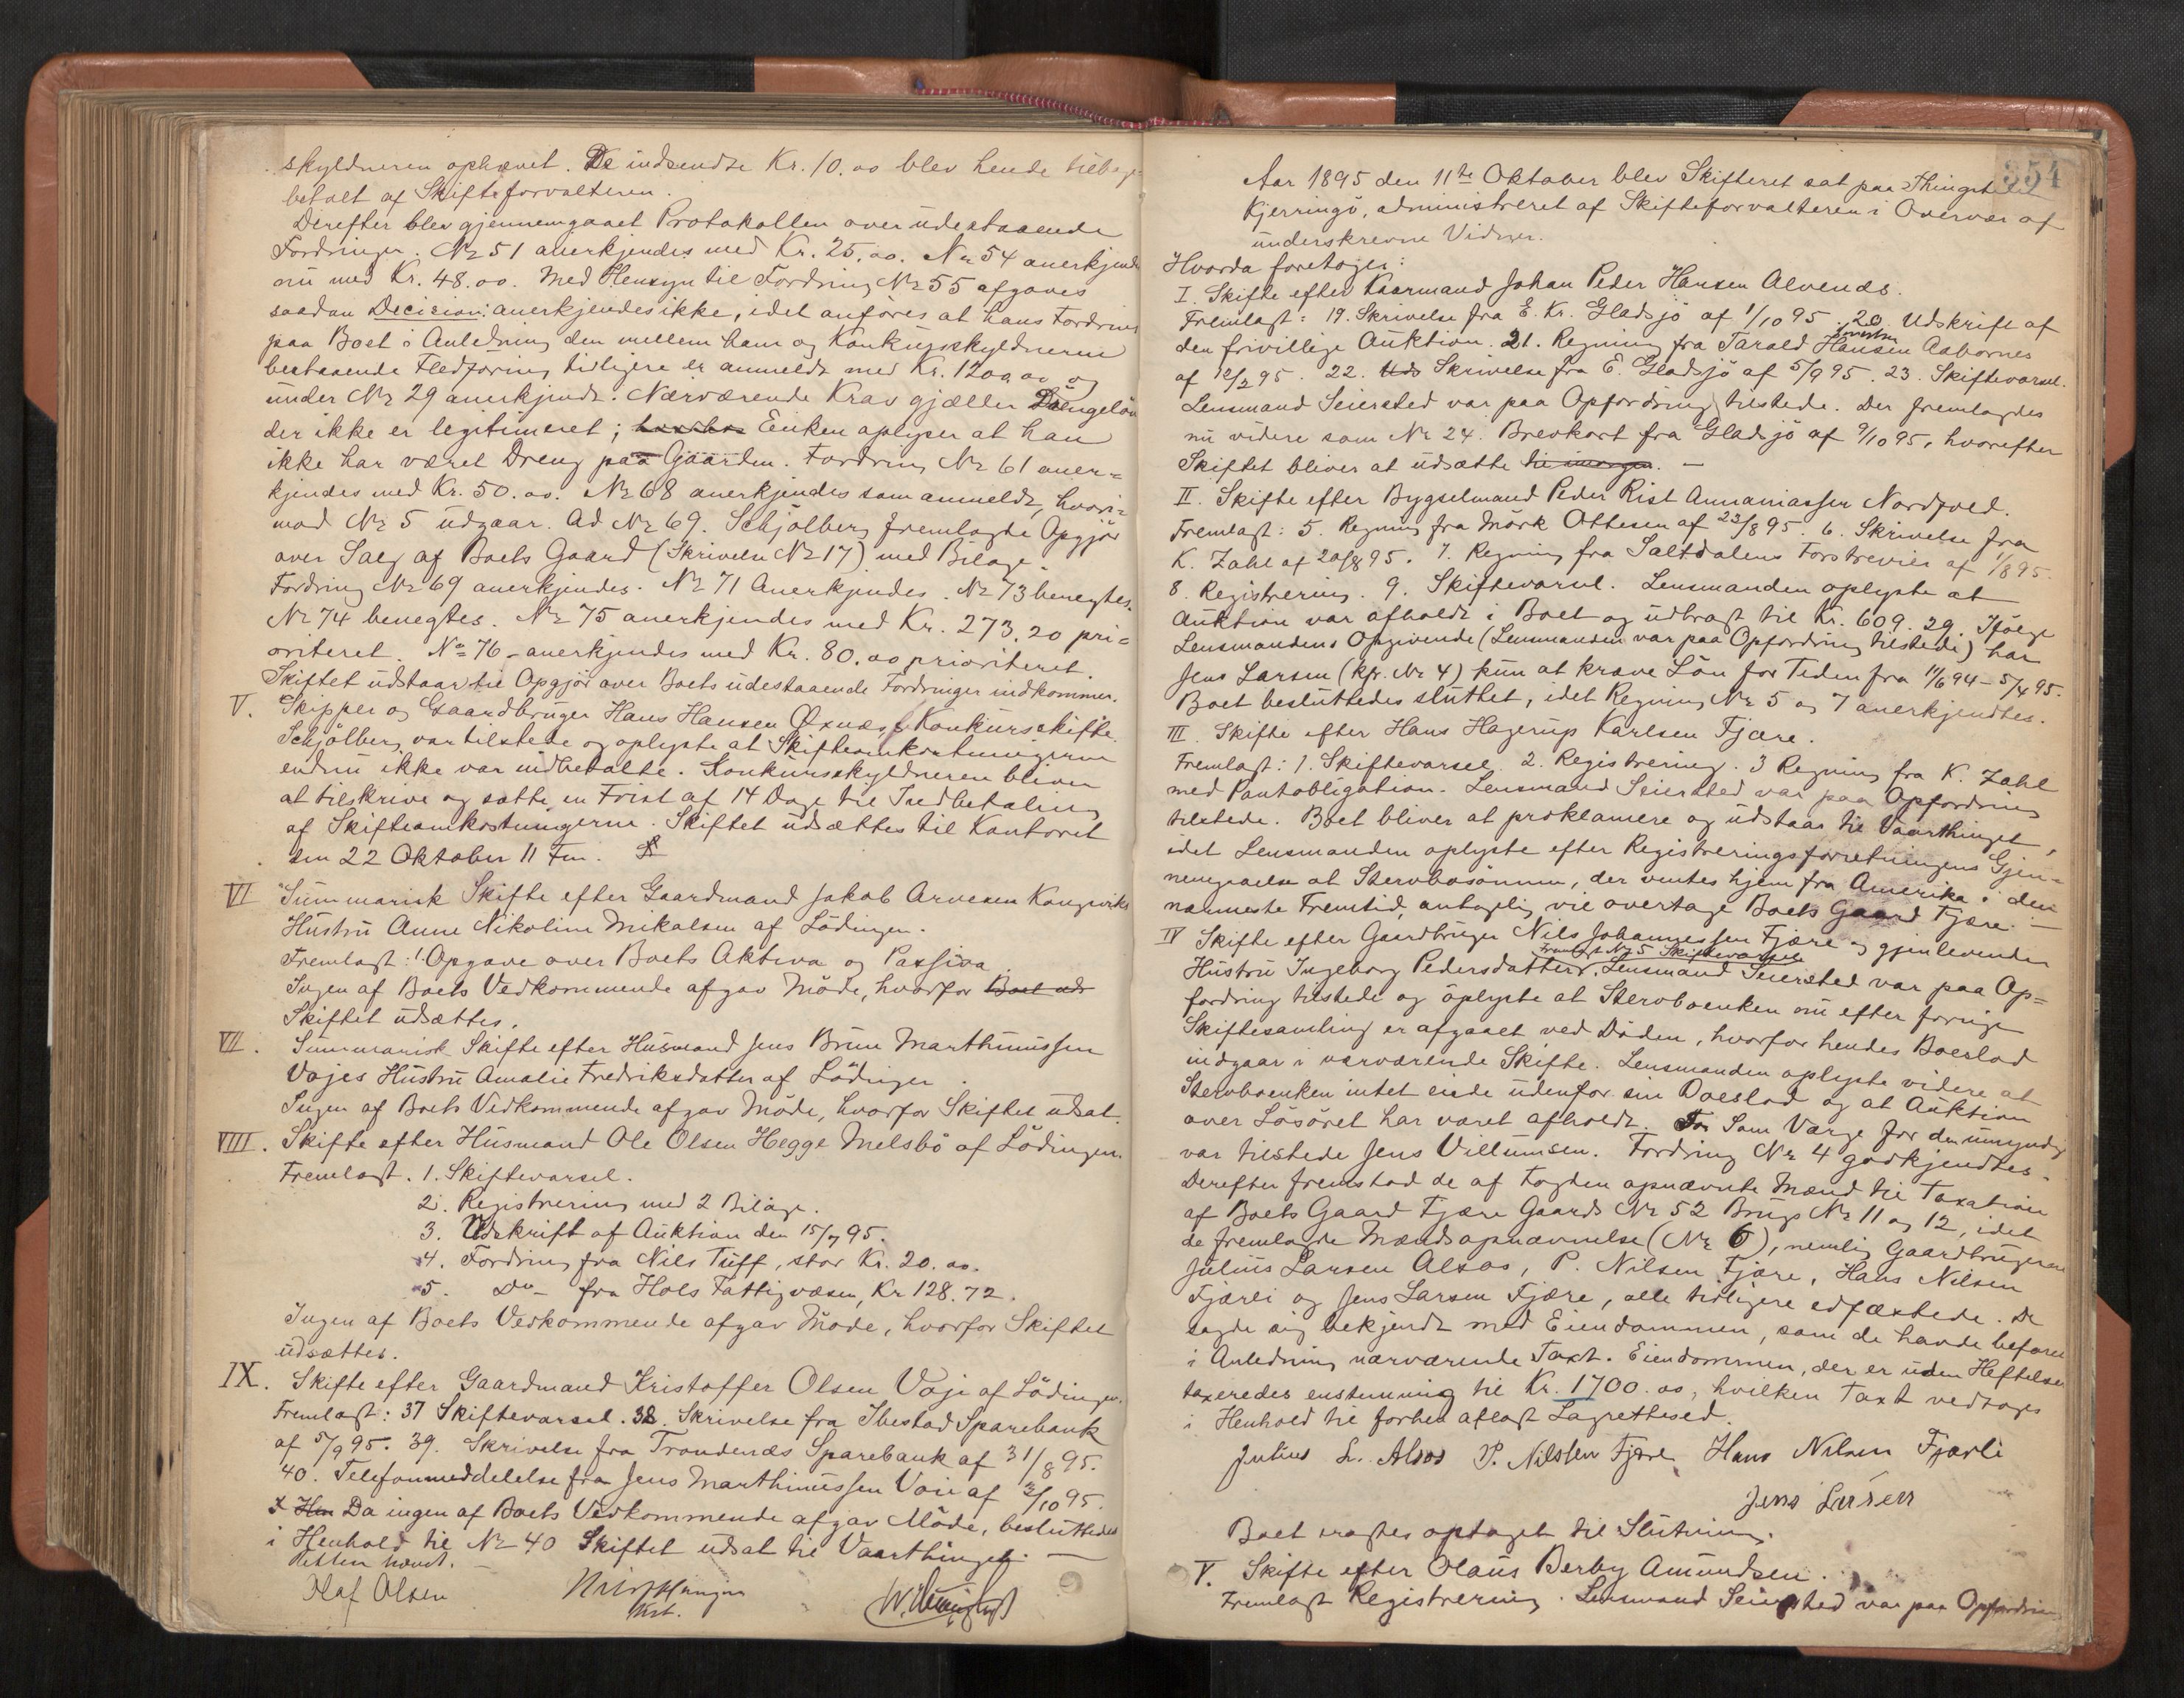 skyldneren ophævet. De indsendte Kr. 10.00 blev hende tilbage
betalt af Skifteforvalteren.
Derefter blev gjennemgaaet Protokollen over udestaaende
Fordringer. № 51 anerkjendes med Kr. 25.00. № 54 anerkjendes
nu med Kr. 48.00. Med Hensyn til Fordring № 55 afgaves
saadan Decision: anerkjendes ikke, idet anföres at hans Fordring
paa Boet i Anledning den mellem ham og Konkursskyldneren
bestaaende Fledföring tidligere er anmeldt med Kr. 1200.00 og
under № 29 anerkjendt. Nærværende Krav gjælder Drengelön
der ikke er legitimeret; Enken oplyser at han
ikke har været Dreng paa Gaarden. Fordring № 61 aner-
kjendes med Kr. 50.00. № 68 anerkjendes som anmeldt, hvori-
mod № 5 udgaar. Ad № 69. Schjölberg fremlagde Opgjör
over Salg af Boets Gaard (Skrivelse № 17) med Bilage.
Fordring № 69 anerkjendes. № 71 Anerkjendes. № 73 benegtes.
№ 74 benegtes. № 75 anerkjendes med Kr. 273.20 pri-
oriteret. № 76 anerkjendes med Kr. 80.00 prioriteret.
Skiftet udstaar til Opgjör over Boets udestaaende Fordringer indkommer.
V. Skipper og Gaardbruger Hans Hansen Øxnæs Konkursskifte.
Schjölberg var tilstede og oplyste at Skifteomkostningerne
endnu ikke var indbetalte. Konkursskyldneren bliver
at tilskrive og sætte en Frist af 14 Dage til Indbetaling
af Skifteomkostningerne. Skiftet udsættes til Kontoret
den 22 Oktober 11 Fm.
VI Summarisk Skifte efter Gaardmand Jakob Arnesen Kongsviks
Hustru Anne Nikoline Mikalsen af Lödingen.
Fremlagt: 1. Opgave over Boets Aktiva og Passiva.
Ingen af Boets Vedkommende afgav Möde, hvorfor Boet uds
Skiftet udsættes.
VII. Summarisk Skifte efter Husmand Jens Brun Marthinussen
Vojes Hustru Amalie Fredriksdatter af Lödingen.
Ingen af Boets Vedkommende afgav Möde, hvorfor Skiftet udsat.
VIII. Skifte efter Husmand Ole Olsen Hegge Melsbö af Lödingen.
Fremlagt. 1. Skiftevarsel.
2. Registrering med 2 Bilage.
3. Udskrift af Auktion den 15/7 95.
4. Fordring fra Nils Tuff, stor Kr. 20.00.
5. Do – fra Hols Fattigvæsen, Kr 128.72.
Ingen af Boets Vedkommende afgav Möde, hvorfor Skiftet
udsættes.
IX. Skifte efter Gaardmand Kristoffer Olsen Voje af Lödingen.
Fremlagt: 37 Skiftevarsel. 38. Skrivelse fra Ibestad Sparebank
af 5/9 95. 39. Skrivelse fra Trondenæs Sparebank af 31/8 95.
40. Telefonmeddelelse fra Jens Marthinussen Voie af 2/10 95.
Da ingen af Boets Vedkommende afgav Möde, besluttedes
i Henhold til № 40 Skiftet udsat til Vaarthinget. —
Retten hævet.
Olaf Olsen
Kst.
354
Aar 1895 den 11te Oktober blev Skifteret sat paa Thingstedet
Kjerringö, administreret af Skifteforvalteren i Overvær af
underskrevne Vidner.
Hvorda foretoges:
I. Skifte efter Kaarmand Johan Peder Hansen Alvenes.
Fremlagt: 19. Skrivelse fra E. Kr. Gladsjö af 1/10 95. 20 Udskrift af
den frivillige Auktion. 21. Regning fra Tarald Hansen Asbornes
af 12/2 95. 22. Uds Skrivelse fra E. Gladsjö af 5/9 95. 23. Skiftevarsel.
Lensmand Seiersted var paa Opfordring tilstede. Der fremlagdes
nu videre som № 24. Brevkort fra Gladsjö af 9/10 95, hvorefter
Skiftet bliver at udsætte til imorgen. —
II. Skifte efter Bygselmand Peder Rist Annaniassen Nordfold.
Fremlagt: 5. Regning fra Mörk Ottesen af 23/8 95. 6. Skrivelse fra
K. Zahl af 20/8 95. 7. Regning fra Saltdalens Forstrevier af 1/8 95.
8. Registrering. 9. Skiftevarsel. Lensmanden oplyste at
Auktion var afholdt i Boet og udbragt til Kr. 609.29. Ifölge
Lensmandens Opgivende (Lensmanden var paa Opfordring tilstede) har
Jens Larsen (kfr. № 4) kun at kræve Lön for Tiden fra 11/6 94 – 5/4 95.
Boet besluttedes sluttet, idet Regning № 5 og 7 anerkjendtes.
III. Skifte efter Hans Hagerup Karlsen Fjære.
Fremlagt: 1. Skiftevarsel. 2. Registrering. 3 Regning fra K. Zahl
med Pantobligation. Lensmand Seiersted var paa Opfordring
tilstede. Boet bliver at proklamere og udstaar til Vaarthinget,
idet Lensmanden oplyste efter Registreringsforretningens Gjen-
nemgaaelse at Stervbosönnen, der ventes hjem fra Amerika i den
nærmeste Fremtid, antagelig vil overtage Boets Gaard Fjære. —
IV Skifte efter Gaardbruger Nils Johannessen Fjære og gjenlevende
Fremlagt № 5 Skiftevarsel
Hustru Ingeborg Pedersdatter. Lensmand Seiersted var paa Op-
fordring tilstede og oplyste at Stervboenken nu efter forrige
Skiftesamling er afgaaet ved Döden, hvorfor hendes Boeslod
indgaar i nærværende Skifte. Lensmanden oplyste videre at
Stervboenken intet eiede udenfor sin Boeslod og at Auktion
over Lösöret har været afholdt. Som Værge for den umyndige
var tilstede Jens Villumsen. Fordring № 4 godkjendtes.
Derefter fremstod de af Fogden opnævnte Mænd til Taxation
af Boets Gaard Fjære Gaards № 52 Brugs № 11 og 12, idet
de fremlagde Mændsopnævnelse (№ 6), nemlig Gaardbrugerne
Julius Larsen Alsos, P. Nilsen Fjære, Hans Nilsen
Fjærli og Jens Larsen Fjære, alle tidligere edfæstede. De
sagde sig bekjendt med Eiendommen, som de havde befaret
i Anledning nærværende Taxt. Eiendommen, der er uden Heftelser
taxeredes enstemmig til Kr. 1700.00, hvilken Taxt vedtoges
i Henhold til forhen aflagt Lagrettesed.
Julius L. Alsos P. Nilssen Fjære Hans Nilsen Fjærli
Jens Larsen
Boet optaget til Slutning.
V. Skifte efter Olaus Berby Amundsen.
Fremlagt Registrering. Lensmand Seiersted var paa Opfordring